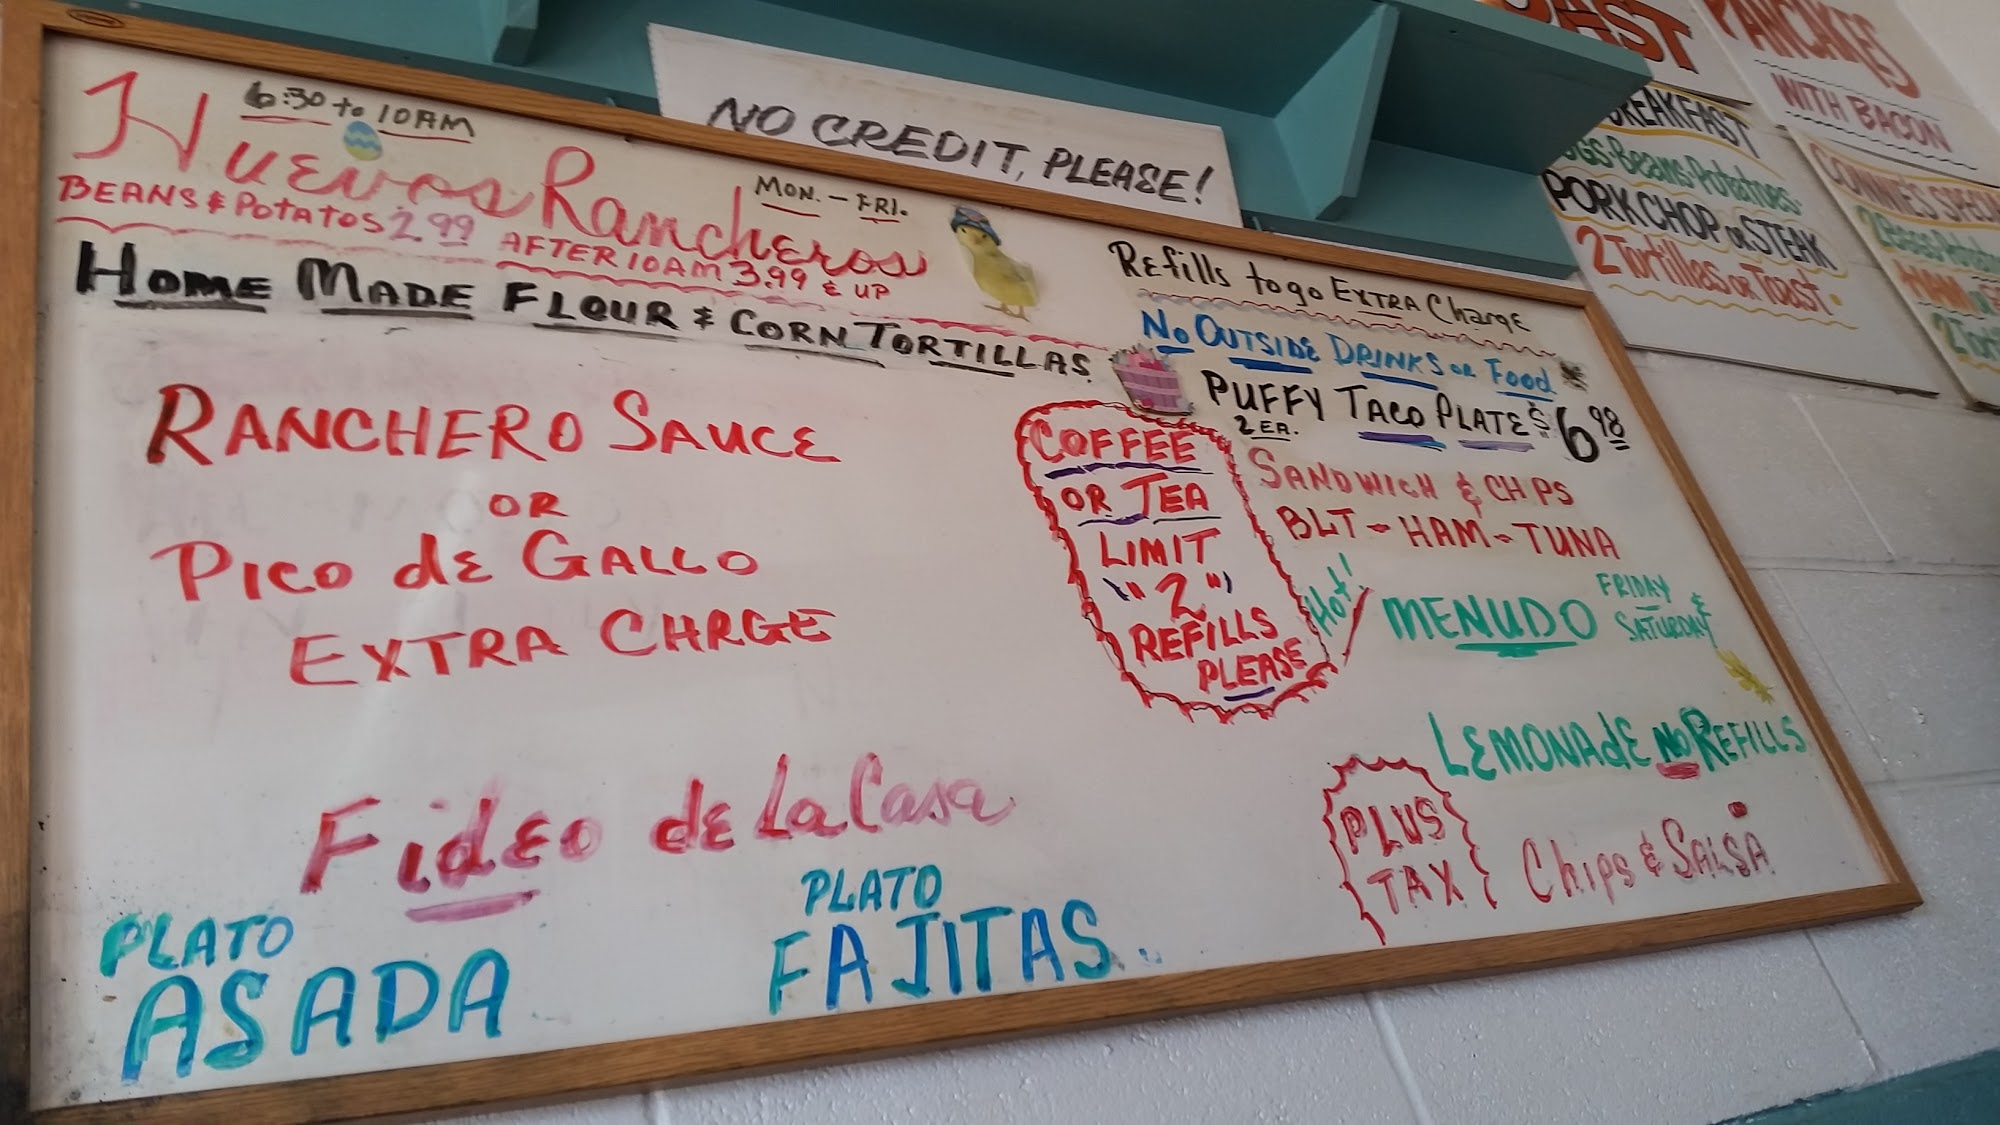 6:30 to 10AM
Huevos Rancheros
MON. - FRI.
BEANS & POTATOS 2.99
AFTER 10AM 3.99 & UP
HOME MADE FLOUR & CORN TORTILLAS
RANCHERO SAUCE
OR
PICO dE GALLO
EXTRA CHRGE
FidEo dE La Casa
PLATO
ASADA
PLATO
FAJITAS
NO CREDIT, PLEASE!
REfills to go EXTRA Charge
No OUTSIDE DRINKS OR Food
PUFFY TACO PLATE $ 6 98
2 EA.
COFFEE
OR TEA
LIMIT
"2"
REFILLS
PLEASE
SANDWICH & CHIPS
BLT - HAM - TUNA
Hot!
MENUDO
FRIDAY &
SATURDAY
LEMONAdE NO REFILLS
PLUS
TAX
Chips & SALSA
BREAKFAST
Beans-Potatoes-
PORK CHOP or STEAK
2 Tortillas or Toast.
PANCAKES
WITH BACON
CONNIE'S